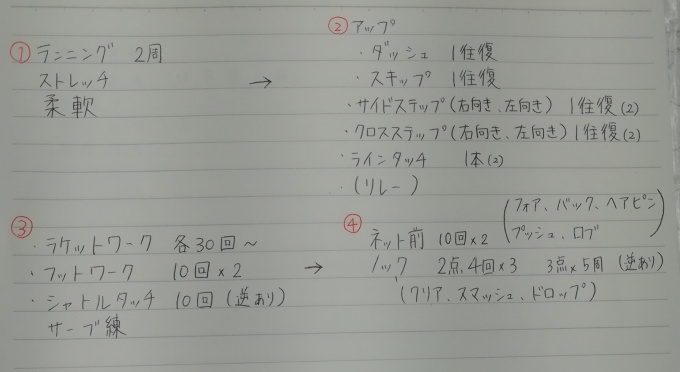 ① ランニング 2周
ストレッチ
柔軟
→
② アップ
・ダッシュ 1往復
・スキップ 1往復
・サイドステップ(右向き、左向き) 1往復(2)
・クロスステップ(右向き、左向き) 1往復(2)
・ラインタッチ 1本(2)
・(リレー)
③
・ラケットワーク 各30回〜
・フットワーク 10回×2
・シャトルタッチ 10回(逆あり)
サーブ練
→
④
ネット前 10回×2 (フォア、バック、ヘアピン
プッシュ、ロブ)
ノック 2点、4回×3 3点×5周(逆あり)
(クリア、スマッシュ、ドロップ)